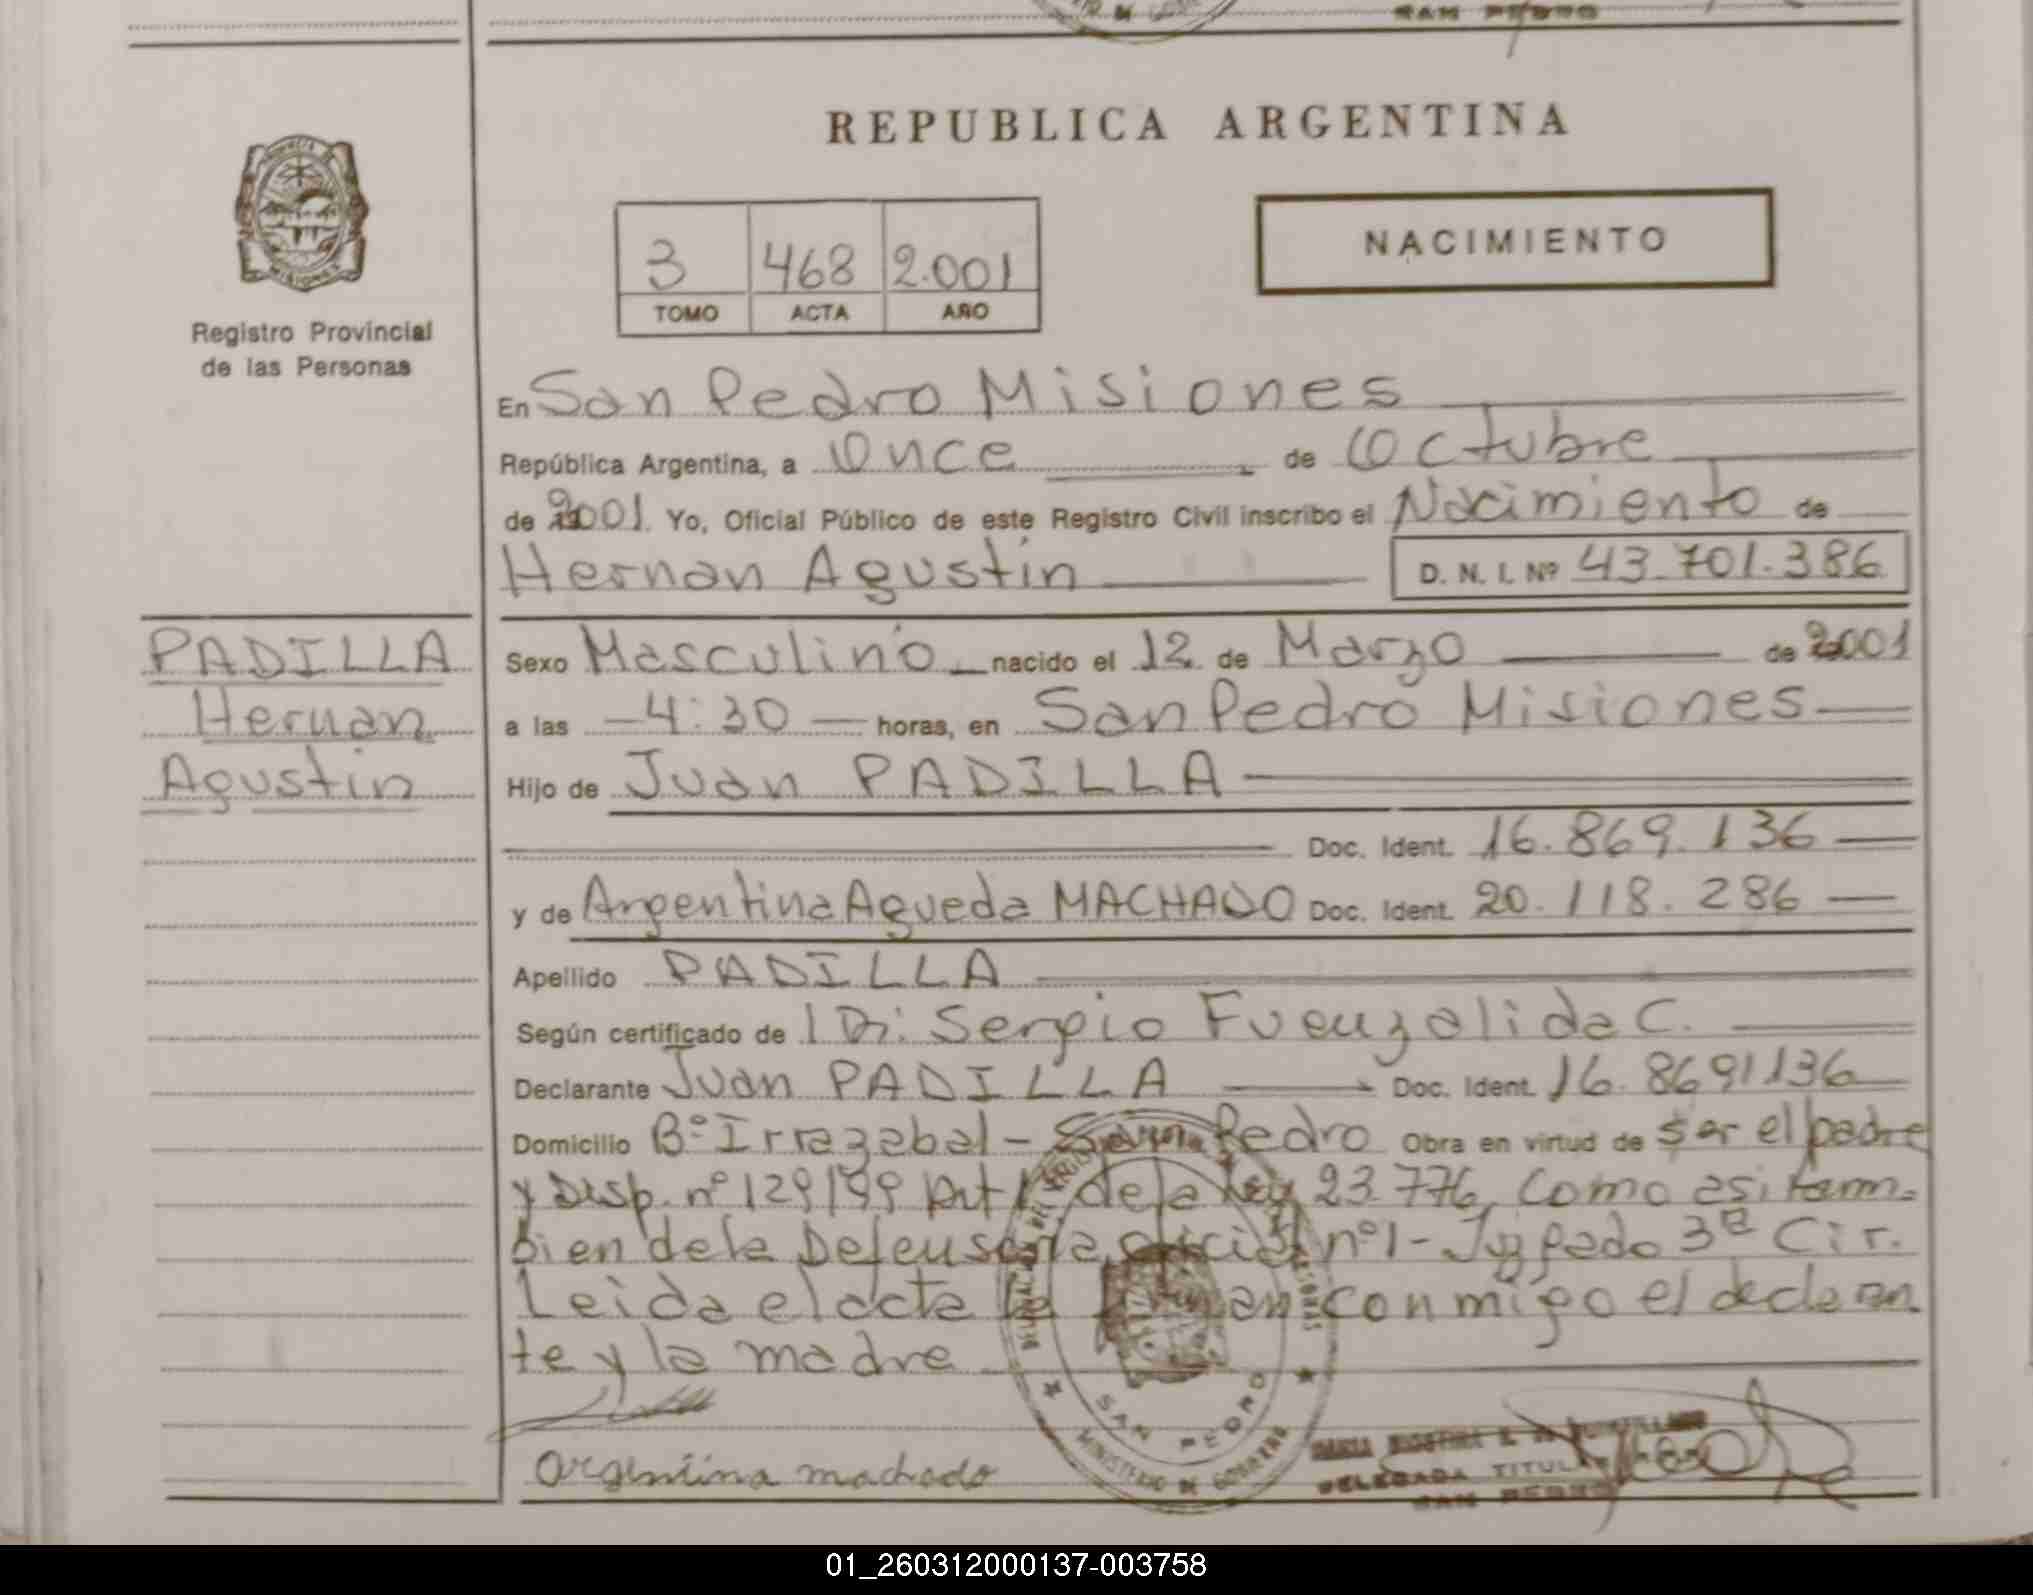 SAN PEDRO
REPUBLICA ARGENTINA
PROVINCIA DE
MISIONES
Registro Provincial
de las Personas
3 468 2.001
TOMO ACTA AÑO
NACIMIENTO
En San Pedro Misiones
República Argentina, a Once de Octubre
de 2001. Yo, Oficial Público de este Registro Civil inscribo el Nacimiento de
Hernan Agustin D. N. I. Nº 43.701.386
PADILLA
Hernan
Agustin
Sexo Masculino nacido el 12 de Marzo de 2001
a las 4:30 horas, en San Pedro Misiones
Hijo de Juan PADILLA
Doc. Ident. 16.869.136
y de Argentina Agueda MACHADO Doc. Ident. 20.118.286
Apellido PADILLA
Según certificado de Dr. Sergio Fuenzalida C.
Declarante Juan PADILLA Doc. Ident. 16.869.136
Domicilio Bº Irrazabal - San Pedro Obra en virtud de ser el padre
y Disp. nº 129/99 Art 1 de la Ley 23.776, Como asi tam-
bien de la Defensoria oficial nº1 - Juzgado 3ª Cir.
Leida el acta la firman conmigo el declaran
te y la madre
SAN PEDRO
MINISTERIO DE GOBIERNO
Argentina machado
DELEGADA TITULAR
SAN PEDRO
01_260312000137-003758